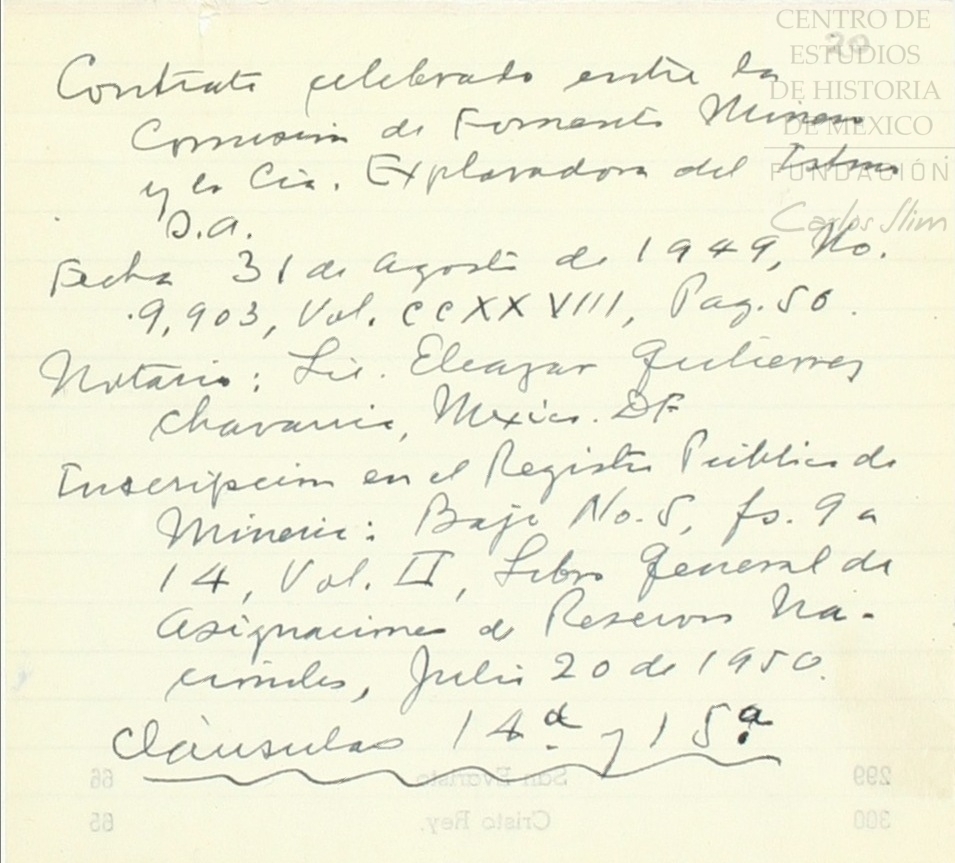 CENTRO DE
ESTUDIOS
DE HISTORIA
DE MEXICO
FUNDACIÓN
Carlos Slim
29
Contrato celebrado entre la
Comision de Fomento Minero
y la Cia. Exploradora del Istmo
S.A.
Fecha 31 de Agosto de 1949, No.
9,903, Vol. CCXXVIII, Pag. 50.
Notario: Lic. Eleazar Gutierrez
Chavarria, Mexico. DF
Inscripcion en el Registro Público de
Mineria: Bajo No. 5, fs. 9 a
14, Vol. II, Libro General de
Asignaciones de Reservas Na-
cionales, Julio 20 de 1950.
Cláusulas 14ª y 15ª
299 San Evaristo 66
300 Cristo Rey. 65